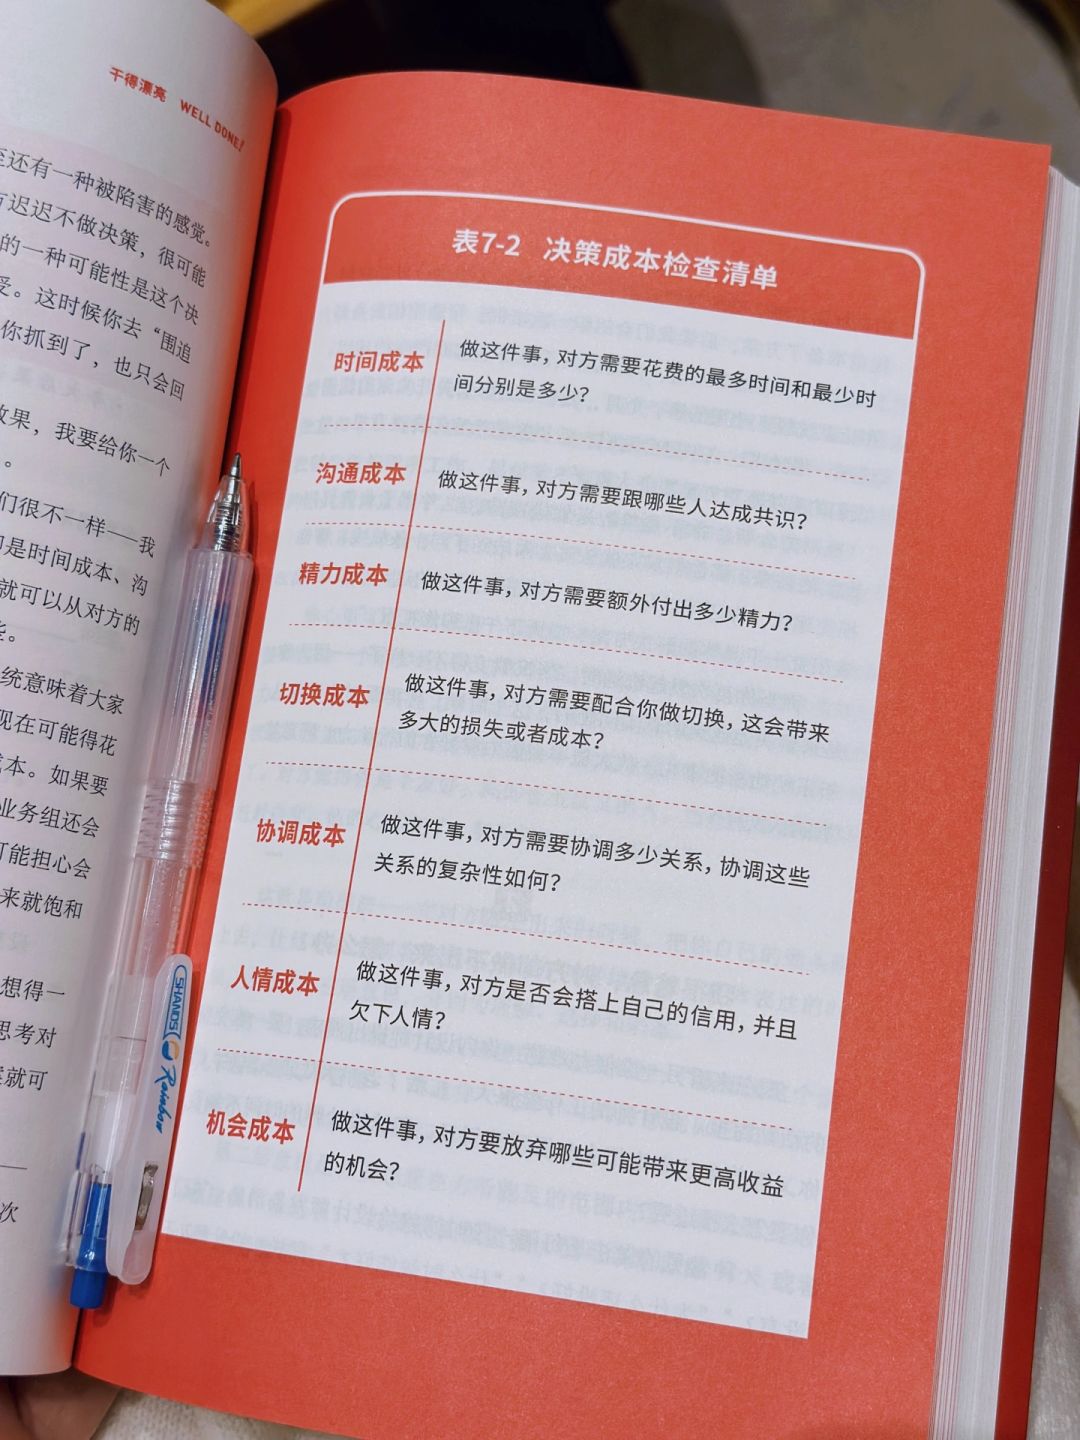 干得漂亮 WELL DONE!
至还有一种被陷害的感觉。
迟迟不做决策，很可能
的一种可能性是这个决
受。这时候你去“围追
你抓到了，也只会回
效果，我要给你一个
。
们很不一样——我
即是时间成本、沟
就可以从对方的
些。
统意味着大家
现在可能得花
成本。如果要
业务组还会
可能担心会
来就饱和
想得一
思考对
案就可
次
SHANDS
Rainbow
表7-2 决策成本检查清单
时间成本
做这件事，对方需要花费的最多时间和最少时
间分别是多少？
沟通成本
做这件事，对方需要跟哪些人达成共识？
精力成本
做这件事，对方需要额外付出多少精力？
切换成本
做这件事，对方需要配合你做切换，这会带来
多大的损失或者成本？
协调成本
做这件事，对方需要协调多少关系，协调这些
关系的复杂性如何？
人情成本
做这件事，对方是否会搭上自己的信用，并且
欠下人情？
机会成本
做这件事，对方要放弃哪些可能带来更高收益
的机会？